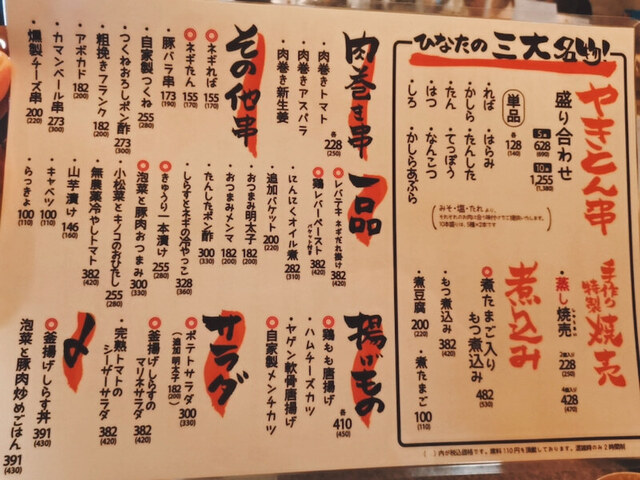 ひなたの 三大名物!
やきとん串
盛り合わせ
5本 628 (690)
10本 1,255 (1,380)
単品 各128 (140)
・れば ・はらみ
・かしら ・たんした
・たん ・てっぽう
・はつ ・なんこつ
・しろ ・かしらあぶら
みそ・塩・たれ より、
手作り特製 焼売
・蒸し焼売 2個入り 228 (250)
4個入り 428 (470)
煮込み
◎煮たまご入りもつ煮込み 482 (530)
・もつ煮込み 382 (420)
・煮豆腐 200 (220)
・煮たまご 100 (110)
肉巻き串
・肉巻きトマト
・肉巻きアスパラ
・肉巻き新生姜
各228 (250)
その他串
◎ネギれば 155 (170)
◎ネギたん 155 (170)
・豚バラ串 173 (190)
・自家製つくね 255 (280)
・つくねおろしポン酢 273 (300)
・粗挽きフランク 182 (200)
・アボカド 182 (200)
・カマンベール串 273 (300)
・燻製チーズ串 200 (220)
一品
◎レバテキ ネギだれ掛け 382 (420)
◎鶏レバーペースト バケット付き 382 (420)
・追加バケット 200 (220)
・にんにくオイル煮 282 (310)
・おつまみ明太子 182 (200)
・おつまみメンマ 182 (200)
・たんしたポン酢 300 (330)
・しらすとネギの冷やっこ 328 (360)
◎きゅうり一本漬け 255 (280)
◎泡菜と豚肉おつまみ 300 (330)
・小松菜とキノコのおひたし 255 (280)
・無農薬冷やしトマト 382 (420)
・山芋漬け 146 (160)
・キャベツ 100 (110)
・らっきょ 100 (110)
揚げもの
◎鶏もも唐揚げ
・ハムチーズカツ
・ヤゲン軟骨唐揚げ
◎自家製メンチカツ
各410 (450)
サラダ
◎ポテトサラダ 300 (330)
(追加明太子 182 (200))
◎釜揚げしらすのマリネサラダ 382 (420)
・完熟トマトのシーザーサラダ 382 (420)
〆
◎釜揚げしらす丼 391 (430)
泡菜と豚肉炒めごはん 391 (430)
( )内が税込価格です。